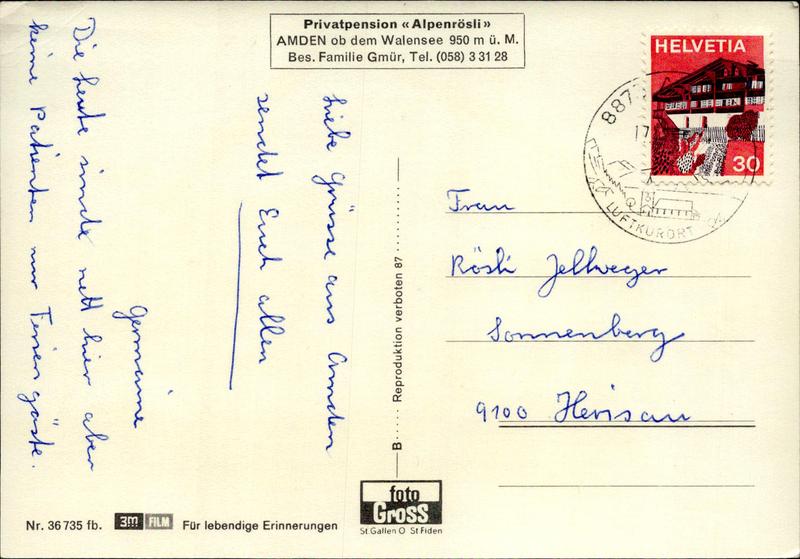 Privatpension «Alpenrösli»
AMDEN ob dem Walensee 950 m ü. M.
Bes. Familie Gmür, Tel. (058) 3 31 28
HELVETIA
30
887
17
LUFTKURORT
Liebe Grüsse aus Amden
sendet Euch allen
Germaine
Die Leute sind nett hier aber
keine Patienten nur Feriengäste.
Frau
Rösli Zellweger
Sonnenberg
9100 Herisau
B Reproduktion verboten 87
Nr. 36 735 fb.
3m FILM
Für lebendige Erinnerungen
foto
Gross
St. Gallen O St. Fiden